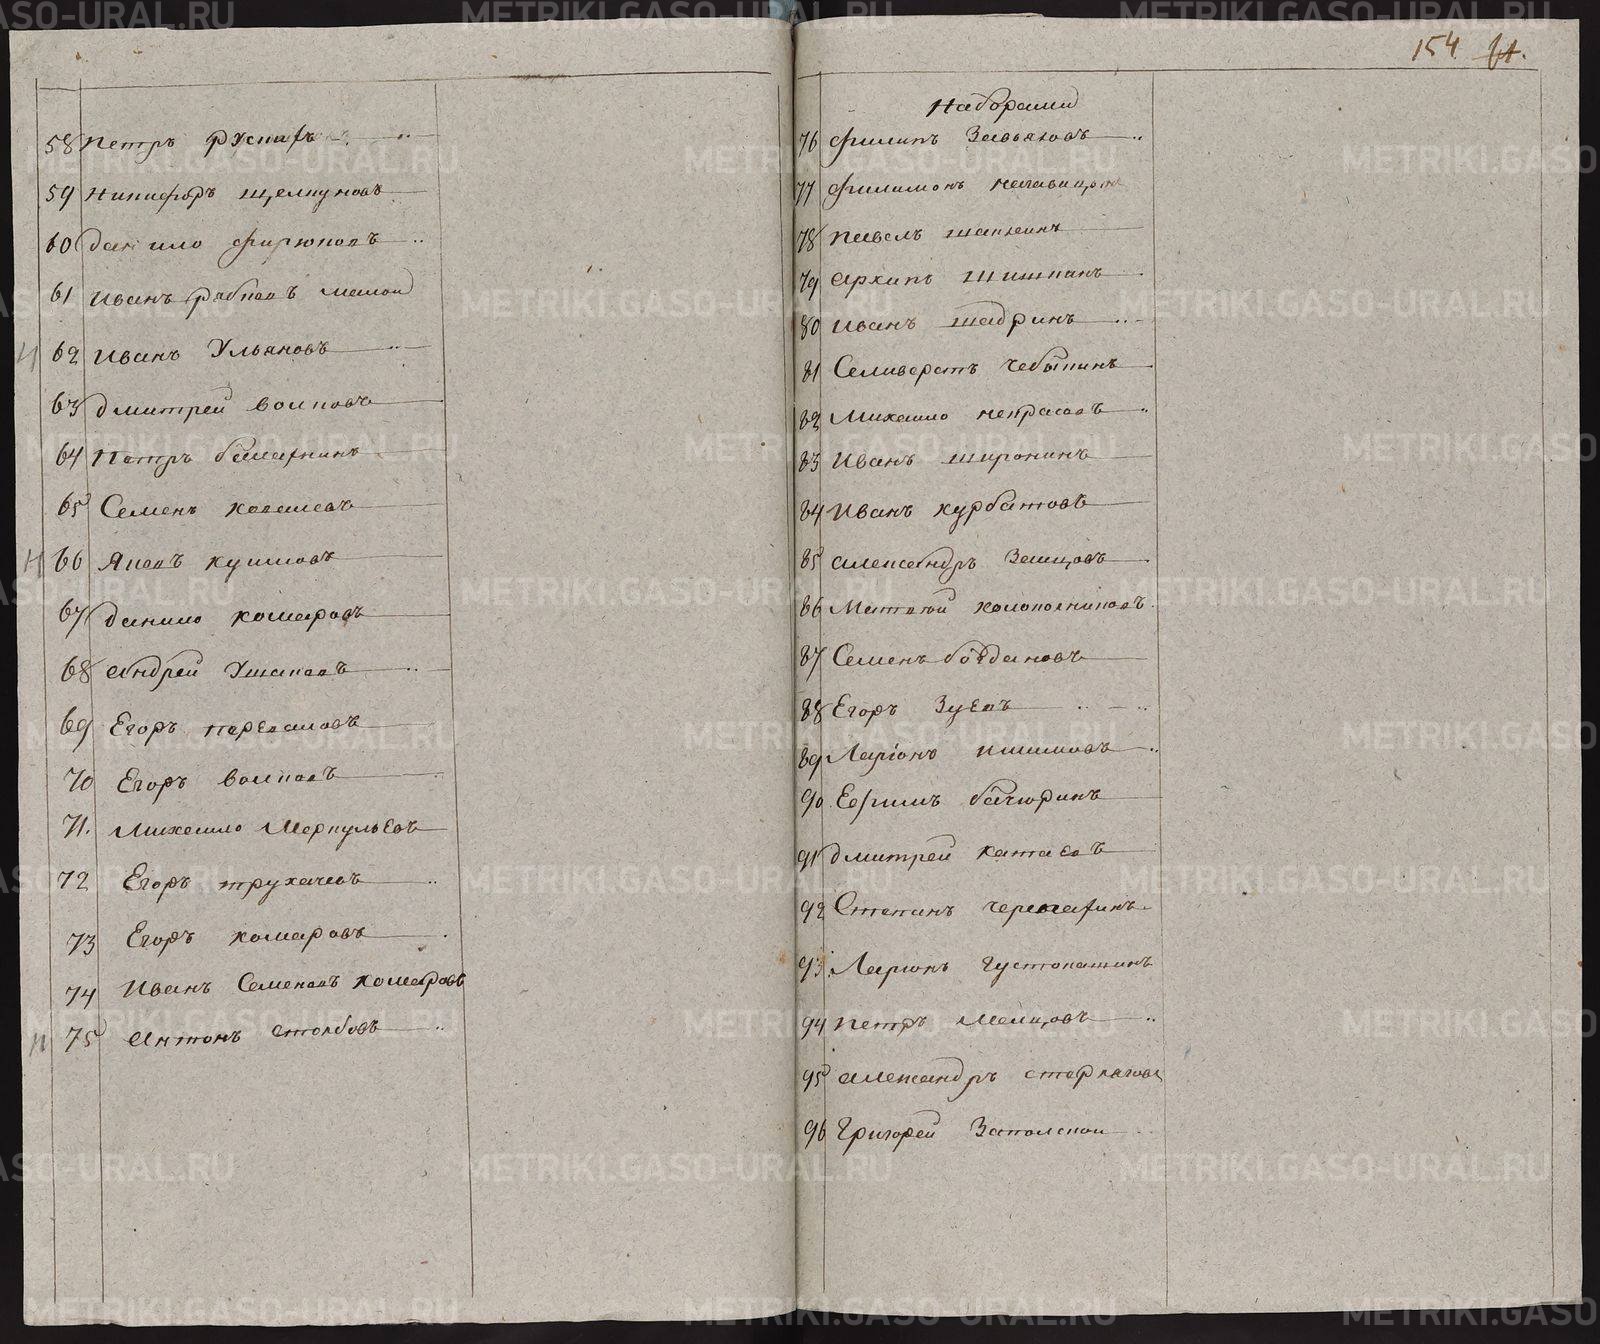 58 Петръ Русин
59 Никифоръ Щелкуновъ
60 Данило Фирюковъ
61 Иванъ Рябковъ малой
62 Иванъ Ульяновъ
63 Дмитрей Волковъ
64 Петръ
65 Семенъ Ковалевъ
66 Яковъ
67 Данило Комаровъ
68 Андрей Ушаковъ
69 Егоръ Переваловъ
70 Егоръ Волковъ
71. Михайло Меркульевъ
72 Егоръ Трухачевъ
73 Егоръ Комаровъ
74 Иванъ Семеновъ Комаровъ
75 Антонъ Столбовъ
154
Наборами
76 Филипъ Завьяловъ
77 Филимонъ
78 Павелъ Шаклеинъ
79 Архипъ Шишкинъ
80 Иванъ Шадринъ
81 Селиверстъ Чебыкинъ
82 Михайло Некрасовъ
83 Иванъ Широкинъ
84 Иванъ Курбатовъ
85 Александръ Земцовъ
86 Матвей Колокольниковъ
87 Семенъ Богдановъ
88 Егоръ Зуевъ
89 Ларіонъ
90 Ефимъ Бачюринъ
91 Дмитрей Катаевъ
92 Степанъ
93 Ларионъ Густокашинъ
94 Петръ Мелцовъ
95 Александръ Стерлаговъ
96 Григорей Затолской
METRIKI.GASO-URAL.RU